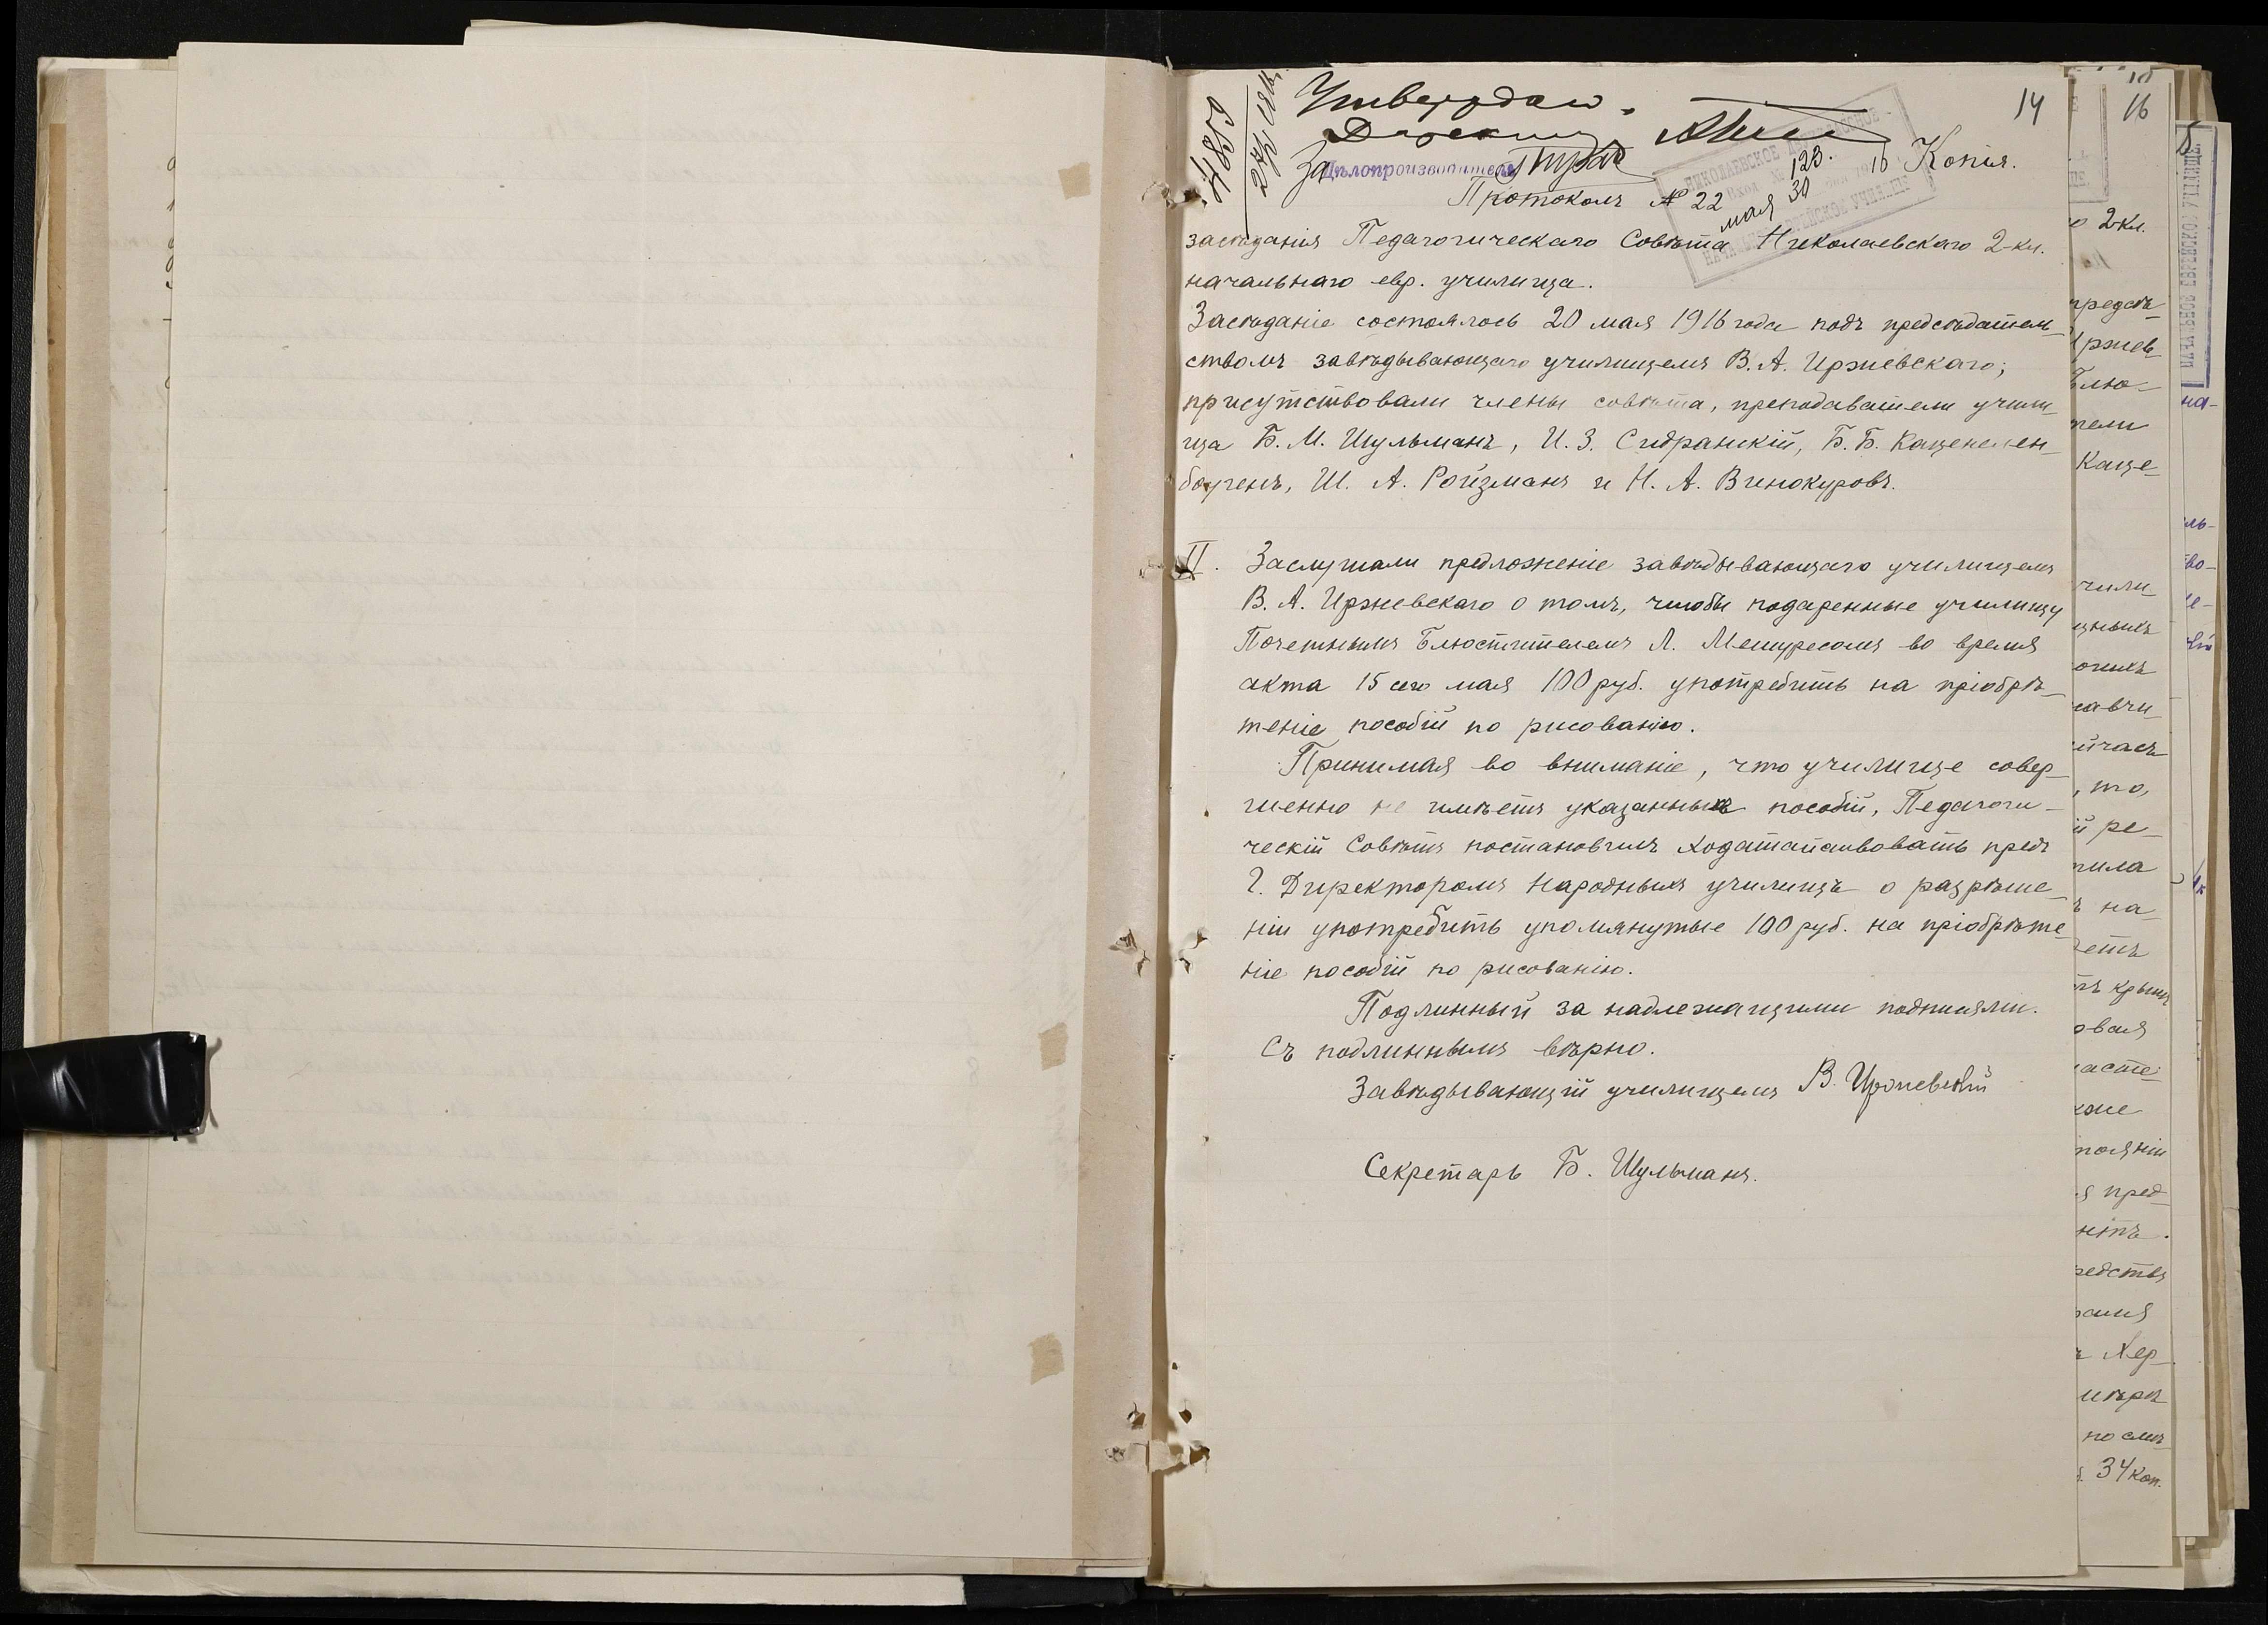 14
Утверждаю.
Директоръ
№ 4859
За Дѣлопроизводителя
Копія.
НИКОЛАЕВСКОЕ ДВУХКЛАССНОЕ
123.
мая 30 16
НАЧАЛЬНОЕ ЕВРЕЙСКОЕ УЧИЛИЩЕ
Протоколъ № 22
засѣданія Педагогическаго Совѣта Николаевскаго 2-кл.
начальнаго евр. училища.
Засѣданіе состоялось 20 мая 1916 года подъ предсѣдатель-
ствомъ завѣдывающаго училищемъ В. А. Иржевскаго;
присутствовали члены совѣта, преподаватели учили-
ща Б. М. Шульманъ, И. З. Сидранскій, Б. Б. Каценелен-
богенъ, Ш. А. Ройзманъ и Н. А. Винокуровъ.
II. Заслушали предложеніе завѣдывающаго училищемъ
В. А. Иржевскаго о томъ, чтобы подаренные училищу
Почетнымъ Блюстителемъ Л. Мешуресомъ во время
акта 15 сего мая 100 руб. употребить на пріобрѣ-
теніе пособій по рисованію.
Принимая во вниманіе, что училище совер-
шенно не имѣетъ указанныхъ пособій, Педагоги-
ческій Совѣтъ постановилъ ходатайствовать предъ
Г. Директоромъ Народныхъ училищъ о разрѣше-
ніи употребить упомянутые 100 руб. на пріобрѣте-
ніе пособій по рисованію.
Подлинный за надлежащими подписями.
Съ подлиннымъ вѣрно.
Завѣдывающій училищемъ В. Иржевскій
Секретарь Б. Шульманъ.
16
2-кл.
предсѣ-
Иржев-
Блю-
тели
Каце-
чили-
то,
ре-
на-
крыш
пред-
Хер-
мѣрѣ
по смѣ-
34 коп.
НАЧАЛЬНОЕ ЕВРЕЙСКОЕ УЧИЛИЩЕ